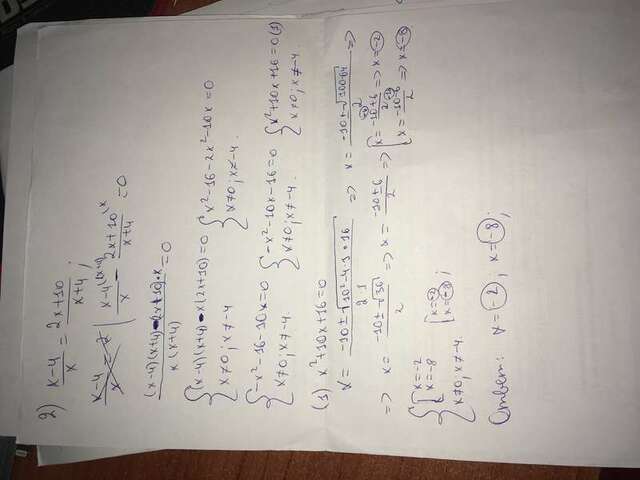 2) (x-4)/x = (2x+10)/(x+4) ;
(x-4)/x = 2 | (x-4)/x ^(x+4) - (2x+10)/(x+4) ^(x = 0
((x-4)(x+4) - 2x+10)·x)/(x(x+4)) = 0
{ (x-4)(x+4) - x(2x+10) = 0 { x²-16-2x²-10x=0
x≠0; x≠-4 x≠0; x≠-4.
{ -x²-16-10x=0 { -x²-10x-16=0 { x²+10x+16=0 (1)
x≠0; x≠-4. x≠0; x≠-4. x≠0; x≠-4.
(1) x²+10x+16=0
x = (-10±√(10²-4·1·16))/(2·1) => x = (-10±√(100-64))/2 =>
=> x = (-10±√36)/2 => x = (-10±6)/2 => [ x = (-10+6)/2 => x = -2
x = (-10-6)/2 => x = -8
{ [ x=-2 [ x=-2
x=-8 x=-8 ;
x≠0, x≠-4.
Ответ: x = -2, x = -8;